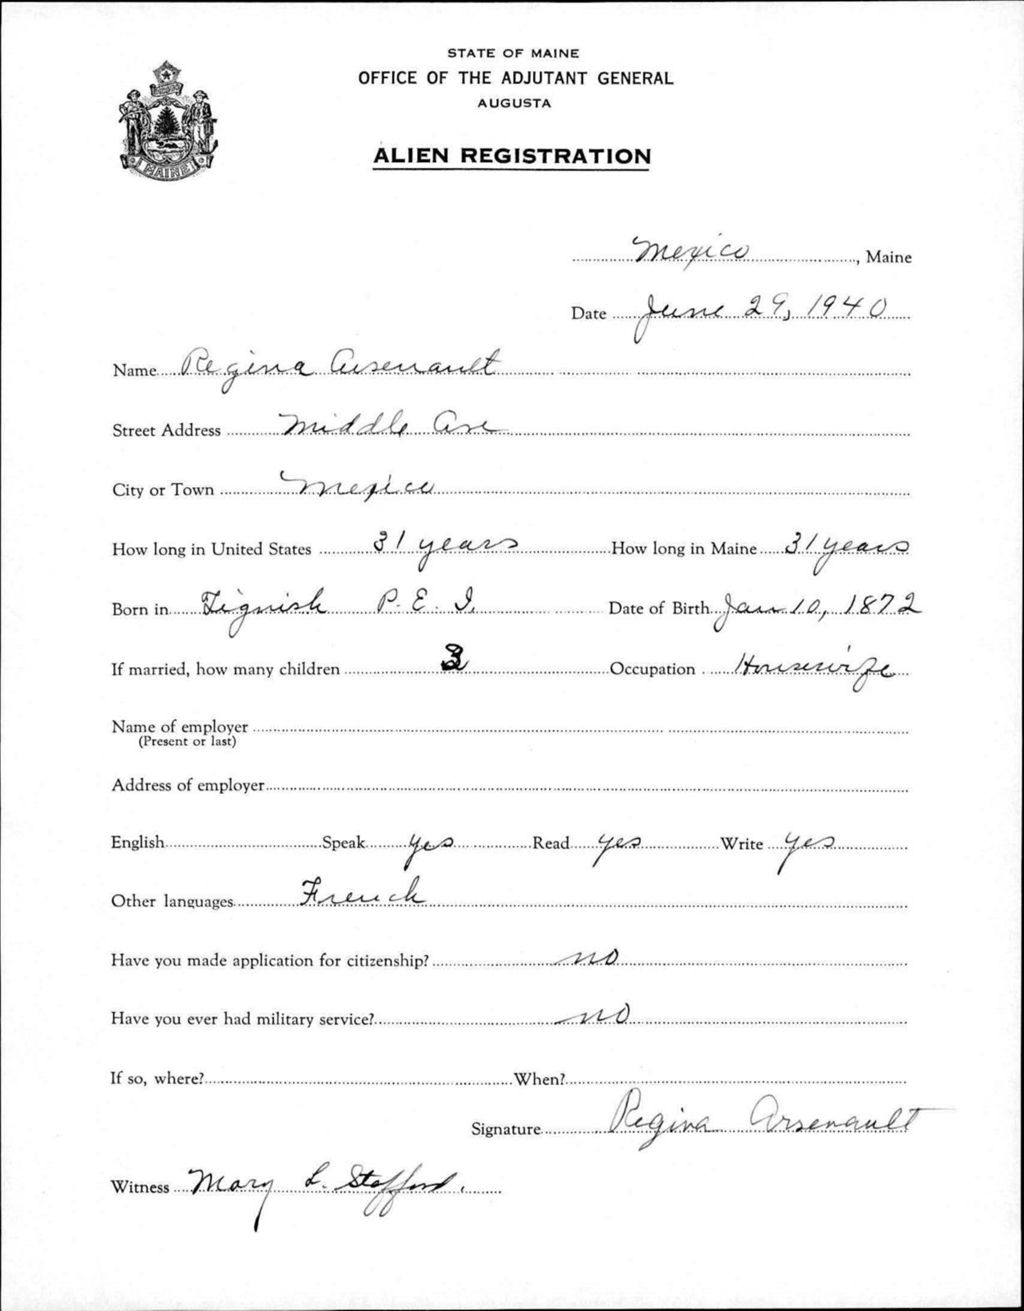 STATE OF MAINE
OFFICE OF THE ADJUTANT GENERAL
AUGUSTA
ALIEN REGISTRATION
MAINE
Mexico, Maine
Date June 29, 1940
Name Regina Arsenault
Street Address Middle Ave
City or Town Mexico
How long in United States 31 years How long in Maine 31 years
Born in Tignish P. E. I. Date of Birth Jan 10, 1872
If married, how many children 3 Occupation Housewife
Name of employer
(Present or last)
Address of employer
English Speak yes Read yes Write yes
Other languages French
Have you made application for citizenship? no
Have you ever had military service? no
If so, where? When?
Signature Regina Arsenault
Witness Mary L. Stafford.